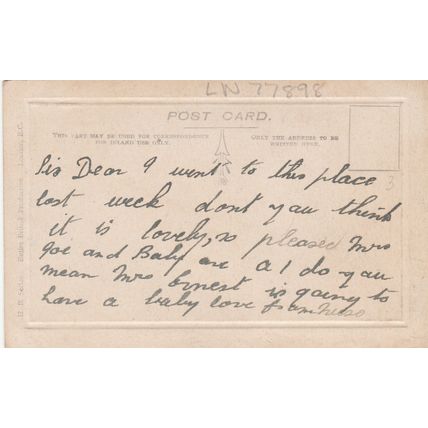 LW 77898
POST CARD.
THIS PART MAY BE USED FOR CORRESPONDENCE
FOR INLAND USE ONLY.
ONLY THE ADDRESS TO BE
WRITTEN HERE.
Sis Dear I went to this place
last week dont you think
it is lovely, so pleased Mrs
Joe and Baby are A1 do you
mean Mrs Ernest is going to
have a baby love from
3
London, E.C.